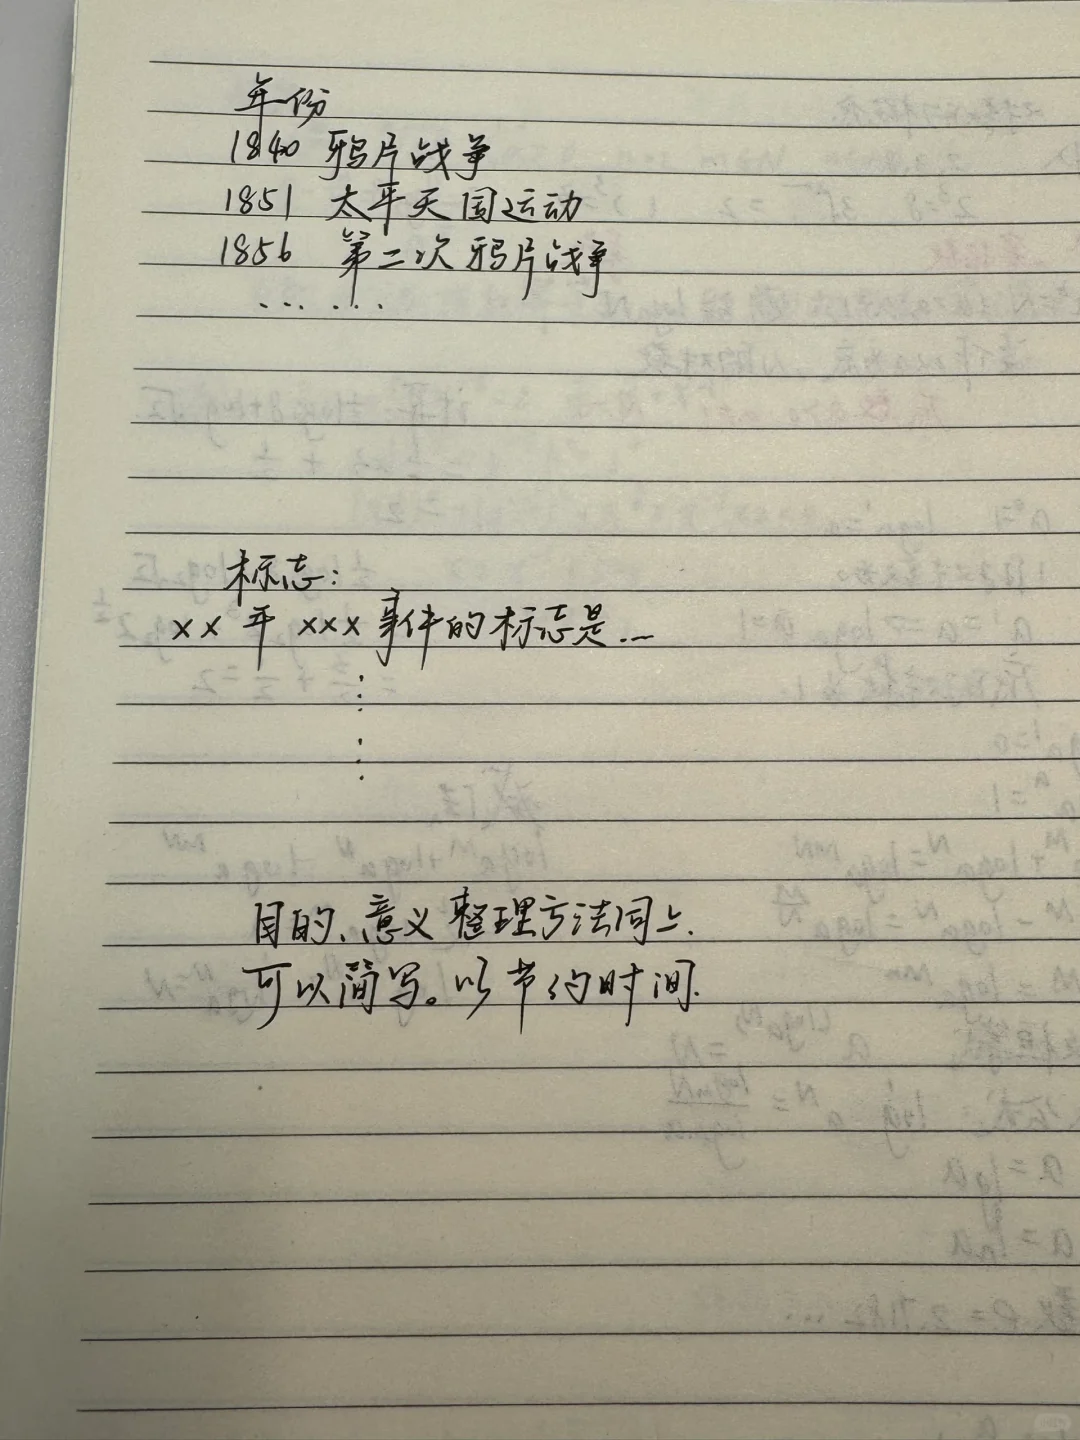 年份
1840 鸦片战争
1851 太平天国运动
1856 第二次鸦片战争
……
标志:
xx年xxx事件的标志是...
⋮
⋮
目的、意义整理方法同上.
可以简写。以节约时间.